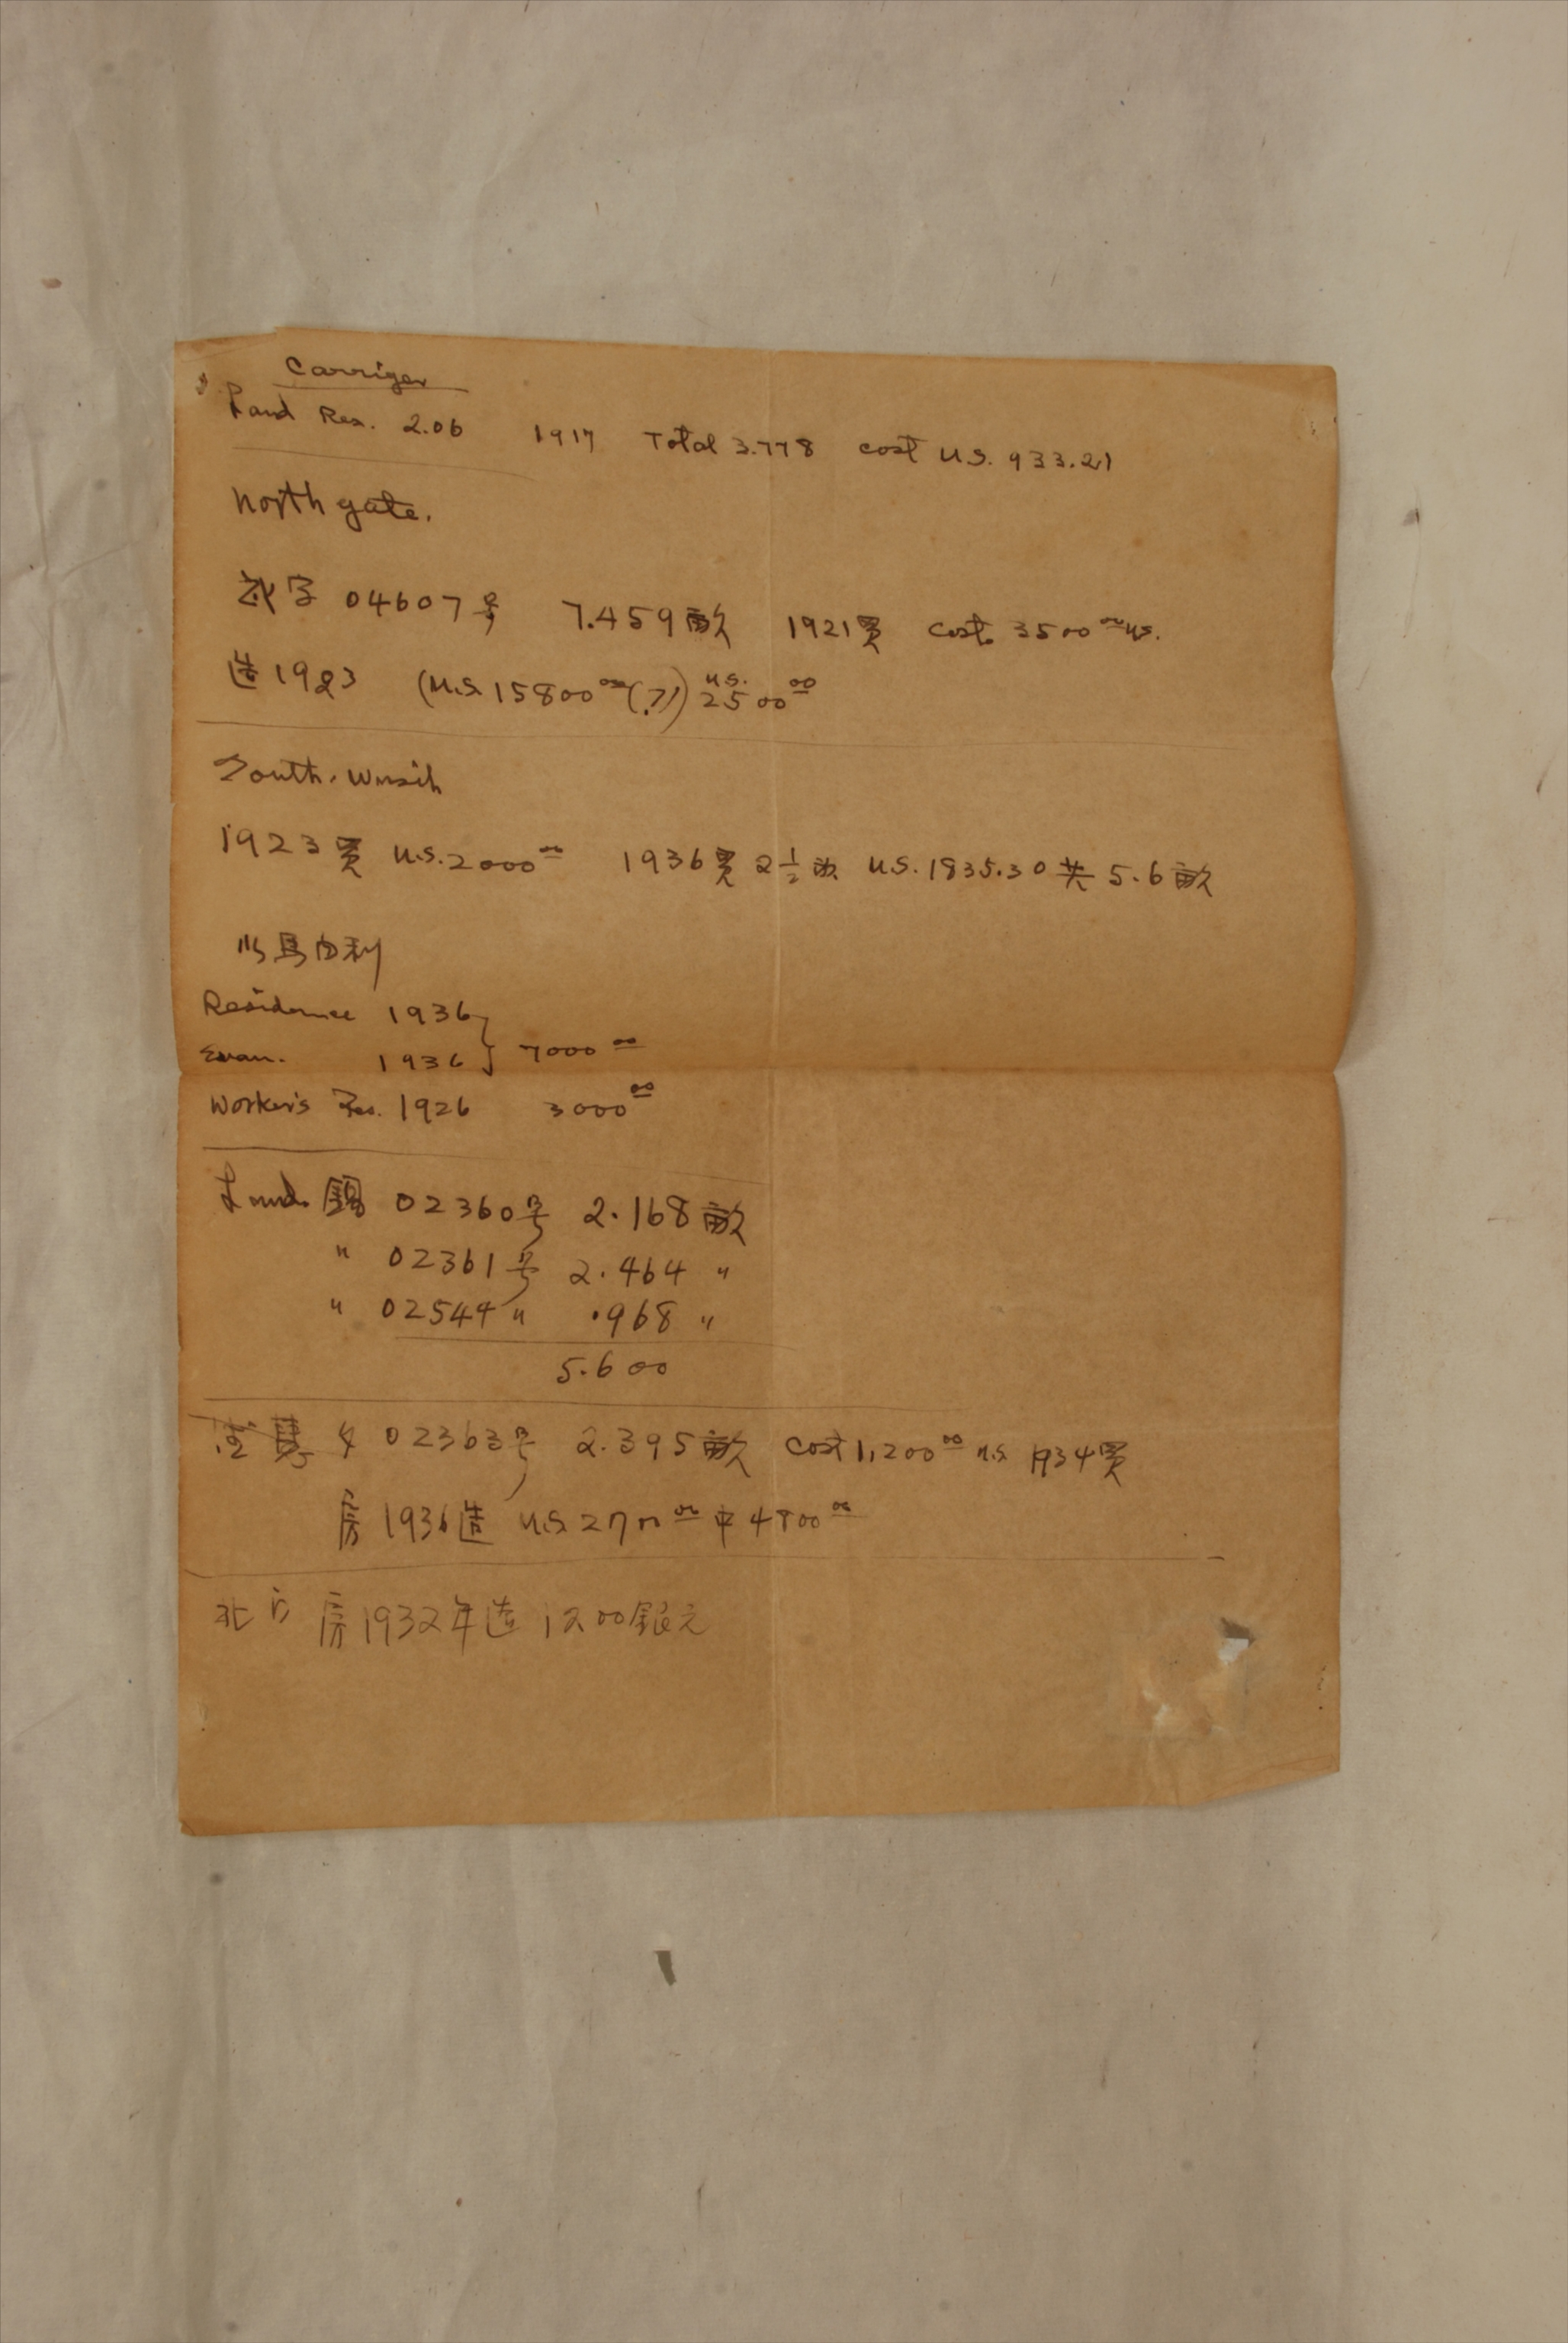 Carriger
Land Res. 2.06 1917 Total 3.778 cost U.S. 933.21
North gate.
字 04607号 7.459畝 1921買 cost. 3500⁰⁰ U.S.
造1923 (U.S. 15800⁰⁰(?)) U.S. 2500⁰⁰
South. Wusih
1923買 U.S. 2000⁰⁰ 1936買 2½畝 U.S. 1835.30 共 5.6畝
以馬內利
Residence 1936
Evan. 1936 } 7000⁰⁰
Worker's Res. 1926 3000⁰⁰
Land. 錫 02360号 2.168畝
" 02361号 2.464 "
" 02544 " .968 "
5.600
02363号 2.395畝 cost 1,200⁰⁰ U.S. 1934買
房 1936造 U.S. 2700⁰⁰ 中 4800⁰⁰
北 房 1932年造 1200銀元